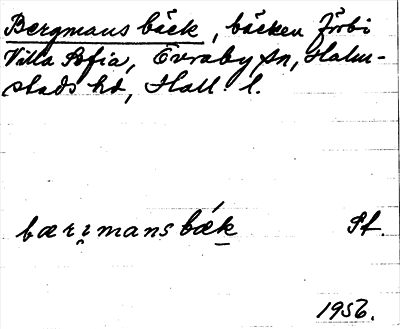 Bergmans bäck, bäcken förbi
Villa Sofia, Övraby sn, Halm-
stads hd, Hall. l.
bærımansbǽk St.
1956.